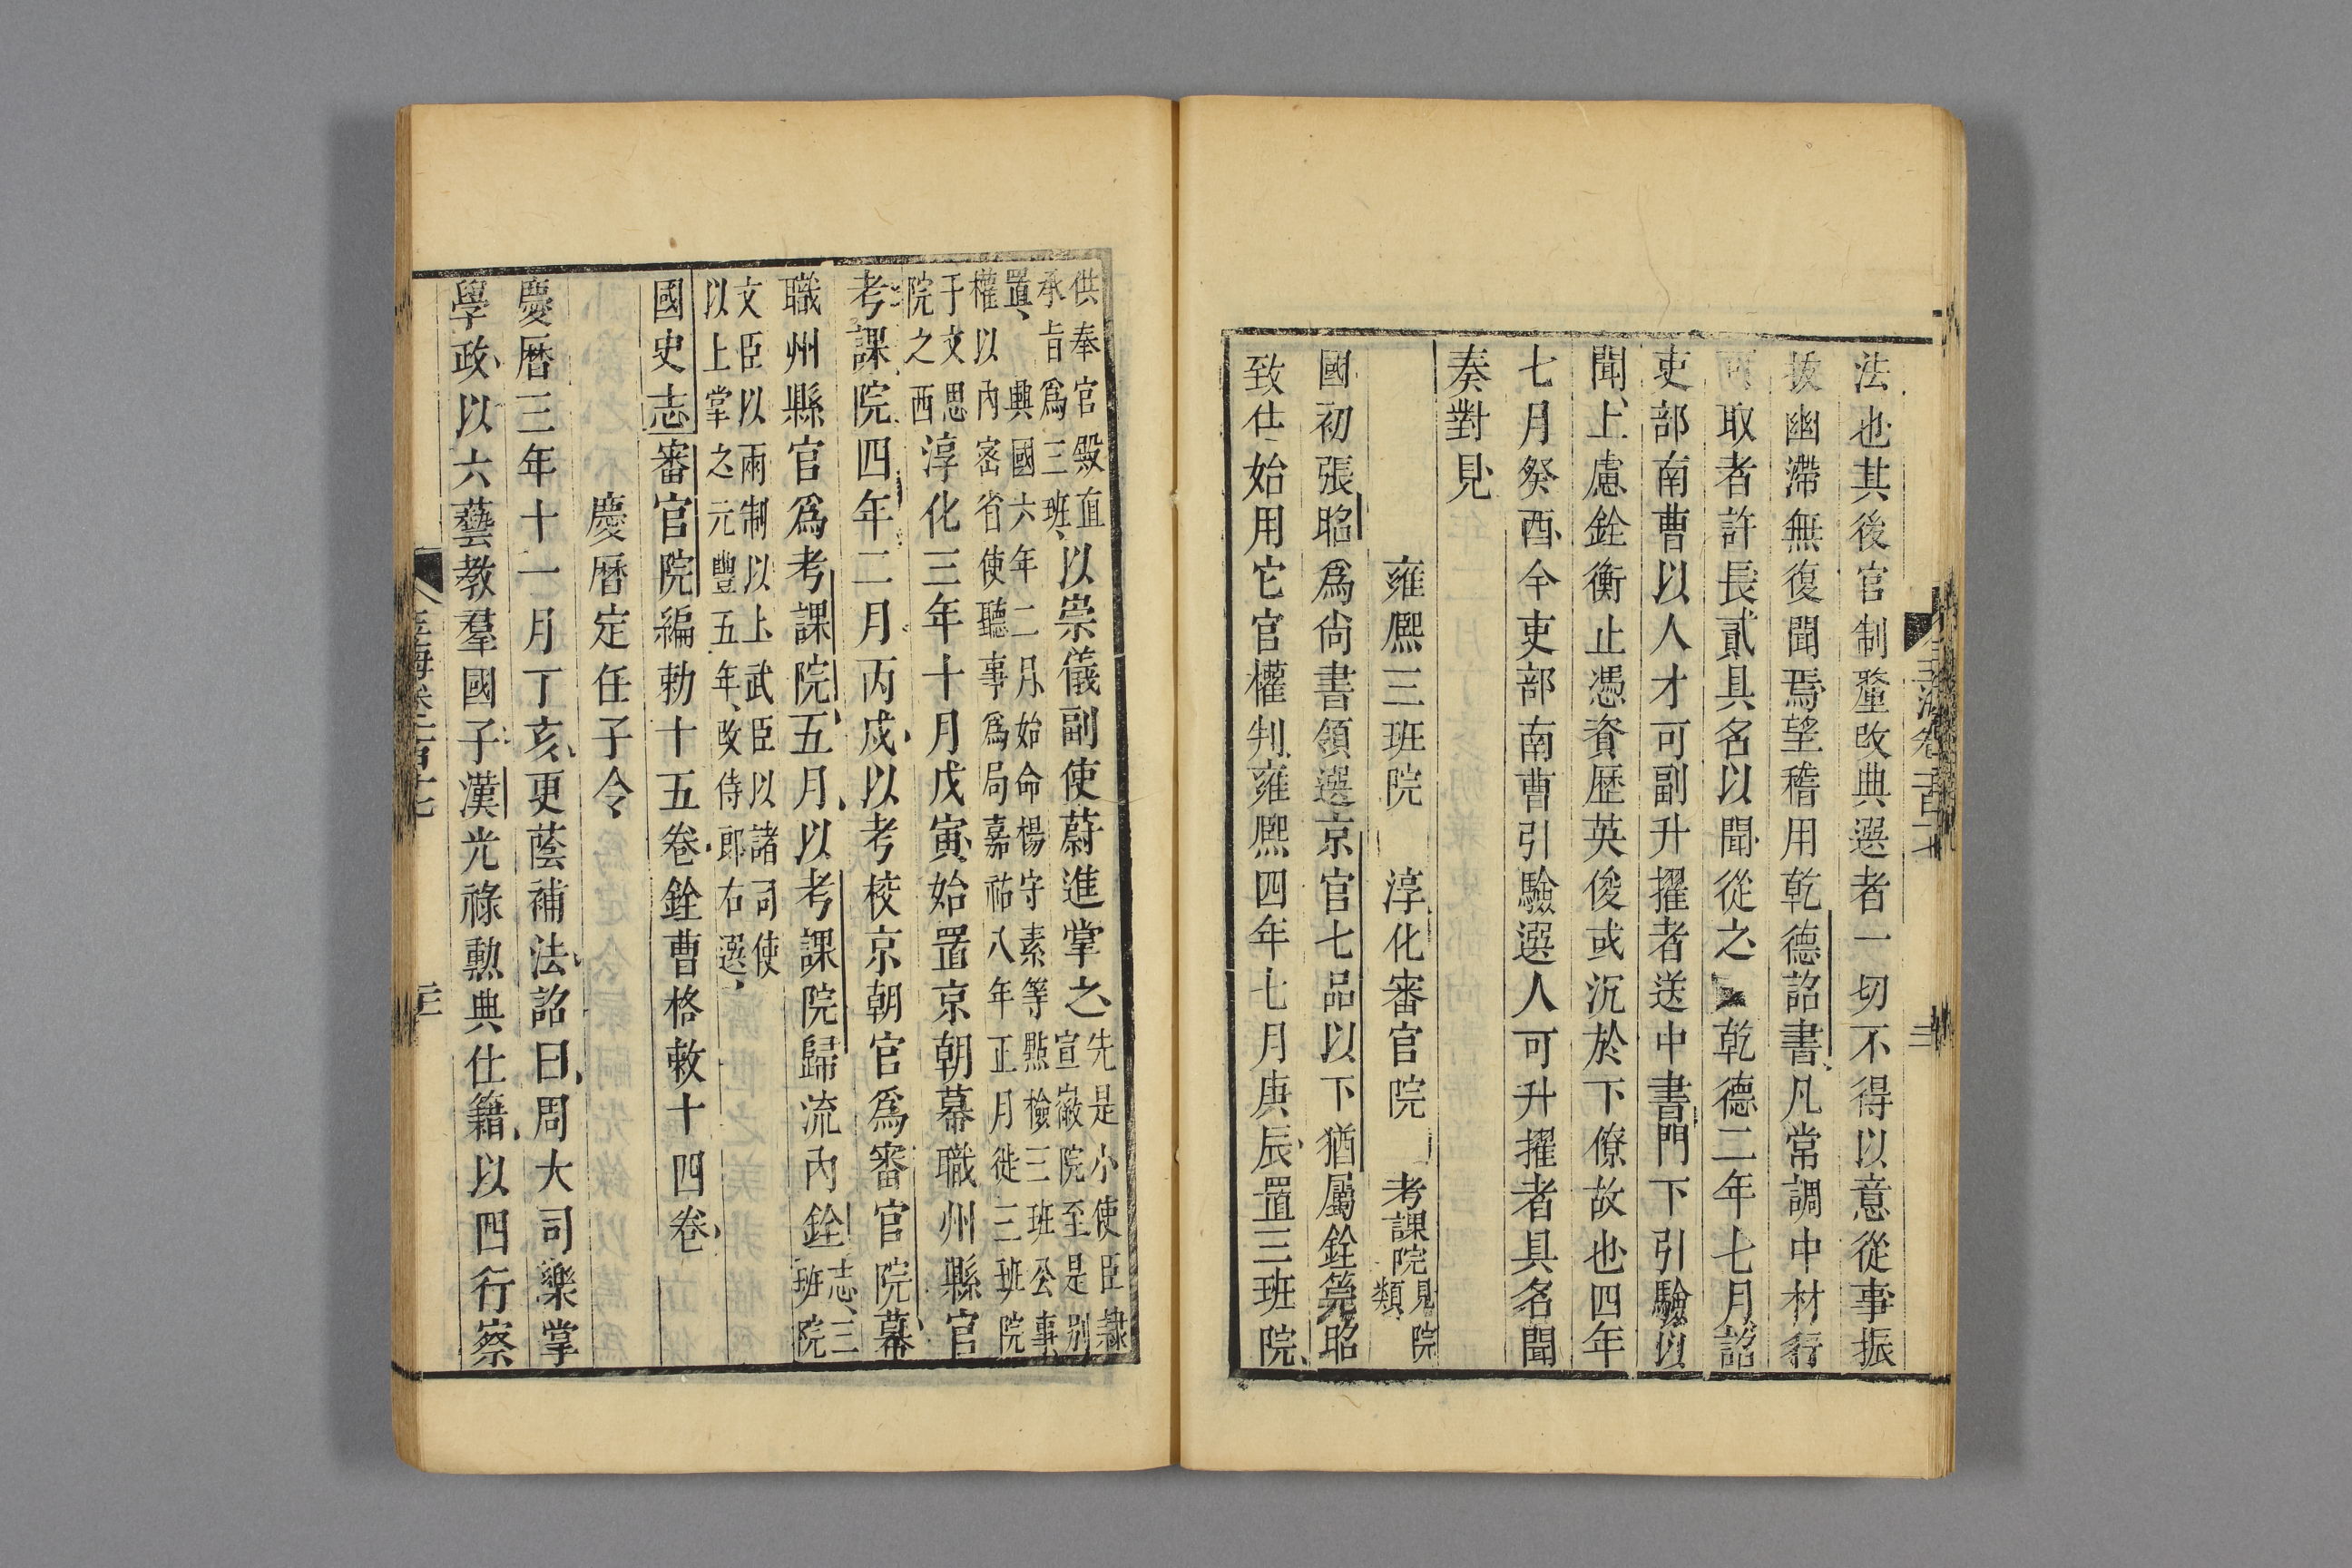 法也其後官制釐改典選者一切不得以意從事振
拔幽滯無復聞焉望稽用乾德詔書凡常調中材行
可取者許長貳具名以聞從之 乾德二年七月詔
吏部南曹以人才可副升擢者送中書門下引驗以
聞上慮銓衡止憑資歷英俊或沉於下僚故也四年
七月癸酉令吏部南曹引驗選人可升擢者具名聞
奏對見
雍熈三班院 淳化審官院 考課院見院類
國初張昭爲尙書領選京官七品以下猶屬銓筦昭
致仕始用它官權判雍熈四年七月庚辰置三班院
供奉官殿直承旨爲三班以崇儀副使蔚進掌之先是小使臣隷宣徽院至是別
置興國六年二月始命楊守素等點檢三班公事權以內客省使聽事爲局嘉祐八年正月徙三班院
于文思院之西淳化三年十月戊寅始置京朝幕職州縣官
考課院四年二月丙戍以考校京朝官爲審官院幕
職州縣官爲考課院五月以考課院歸流內銓志三班院
文臣以兩制以上武臣以諸司使以上掌之元豐五年改侍郎右選
國史志審官院編勅十五卷銓曹格敕十四卷
慶曆定任子令
慶曆三年十一月丁亥更蔭補法詔曰周大司樂掌
學政以六藝教羣國子漢光祿勲典仕籍以四行察